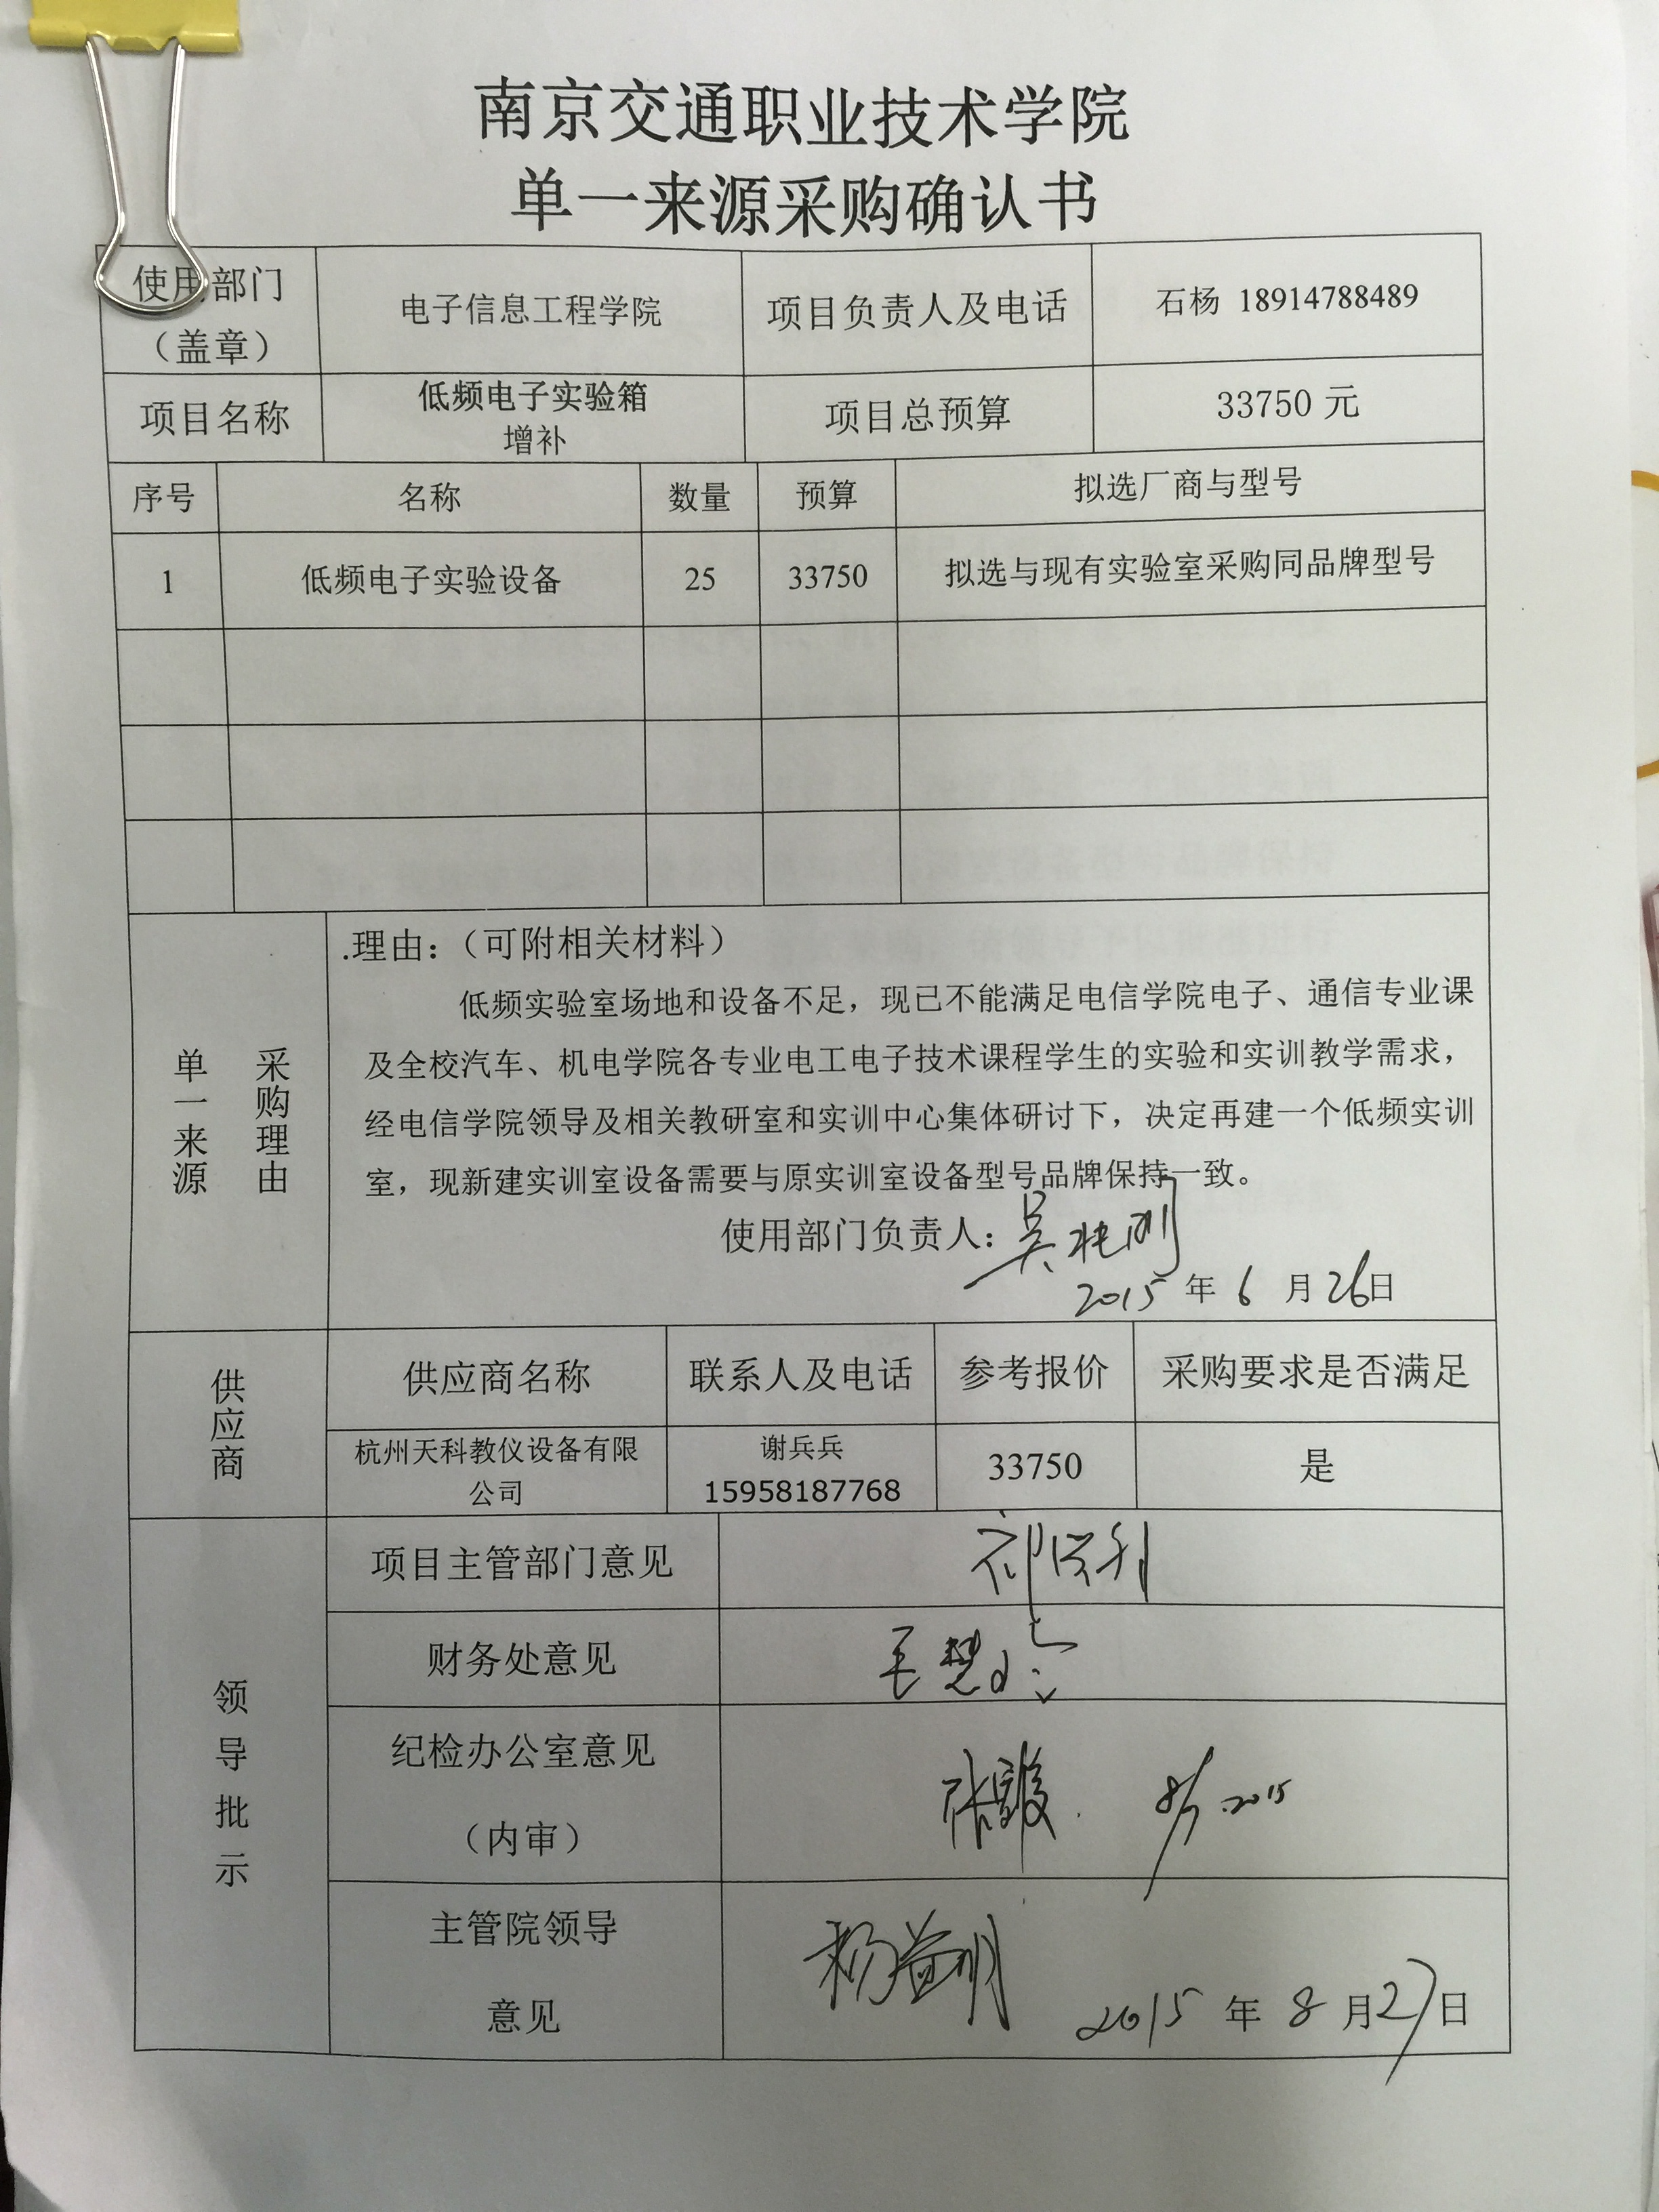 南京交通职业技术学院
单一来源采购确认书
使用部门
（盖章）
电子信息工程学院
项目负责人及电话
石杨 18914788489
项目名称
低频电子实验箱
增补
项目总预算
33750 元
序号 名称 数量 预算 拟选厂商与型号
1 低频电子实验设备 25 33750 拟选与现有实验室采购同品牌型号
单一来源
采购理由
.理由：（可附相关材料）
低频实验室场地和设备不足，现已不能满足电信学院电子、通信专业课
及全校汽车、机电学院各专业电工电子技术课程学生的实验和实训教学需求，
经电信学院领导及相关教研室和实训中心集体研讨下，决定再建一个低频实训
室，现新建实训室设备需要与原实训室设备型号品牌保持一致。
使用部门负责人：
2015 年 6 月 26日
供应商
供应商名称 联系人及电话 参考报价 采购要求是否满足
杭州天科教仪设备有限
公司
谢兵兵
15958187768
33750
是
领导批示
项目主管部门意见
财务处意见
纪检办公室意见
（内审）
主管院领导
意见
杨益明
2015 年 8 月27日